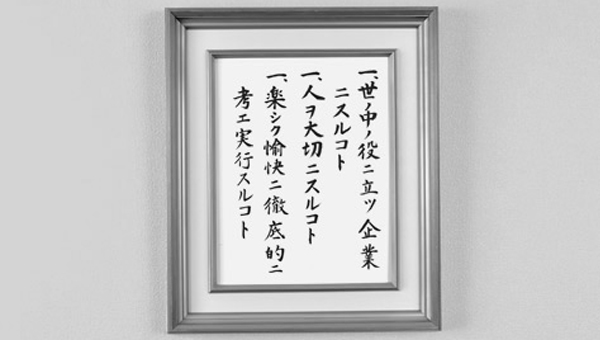 一、世ノ中ノ役ニ立ツ企業
ニスルコト
一、人ヲ大切ニスルコト
一、楽シク愉快ニ徹底的ニ
考エ実行スルコト